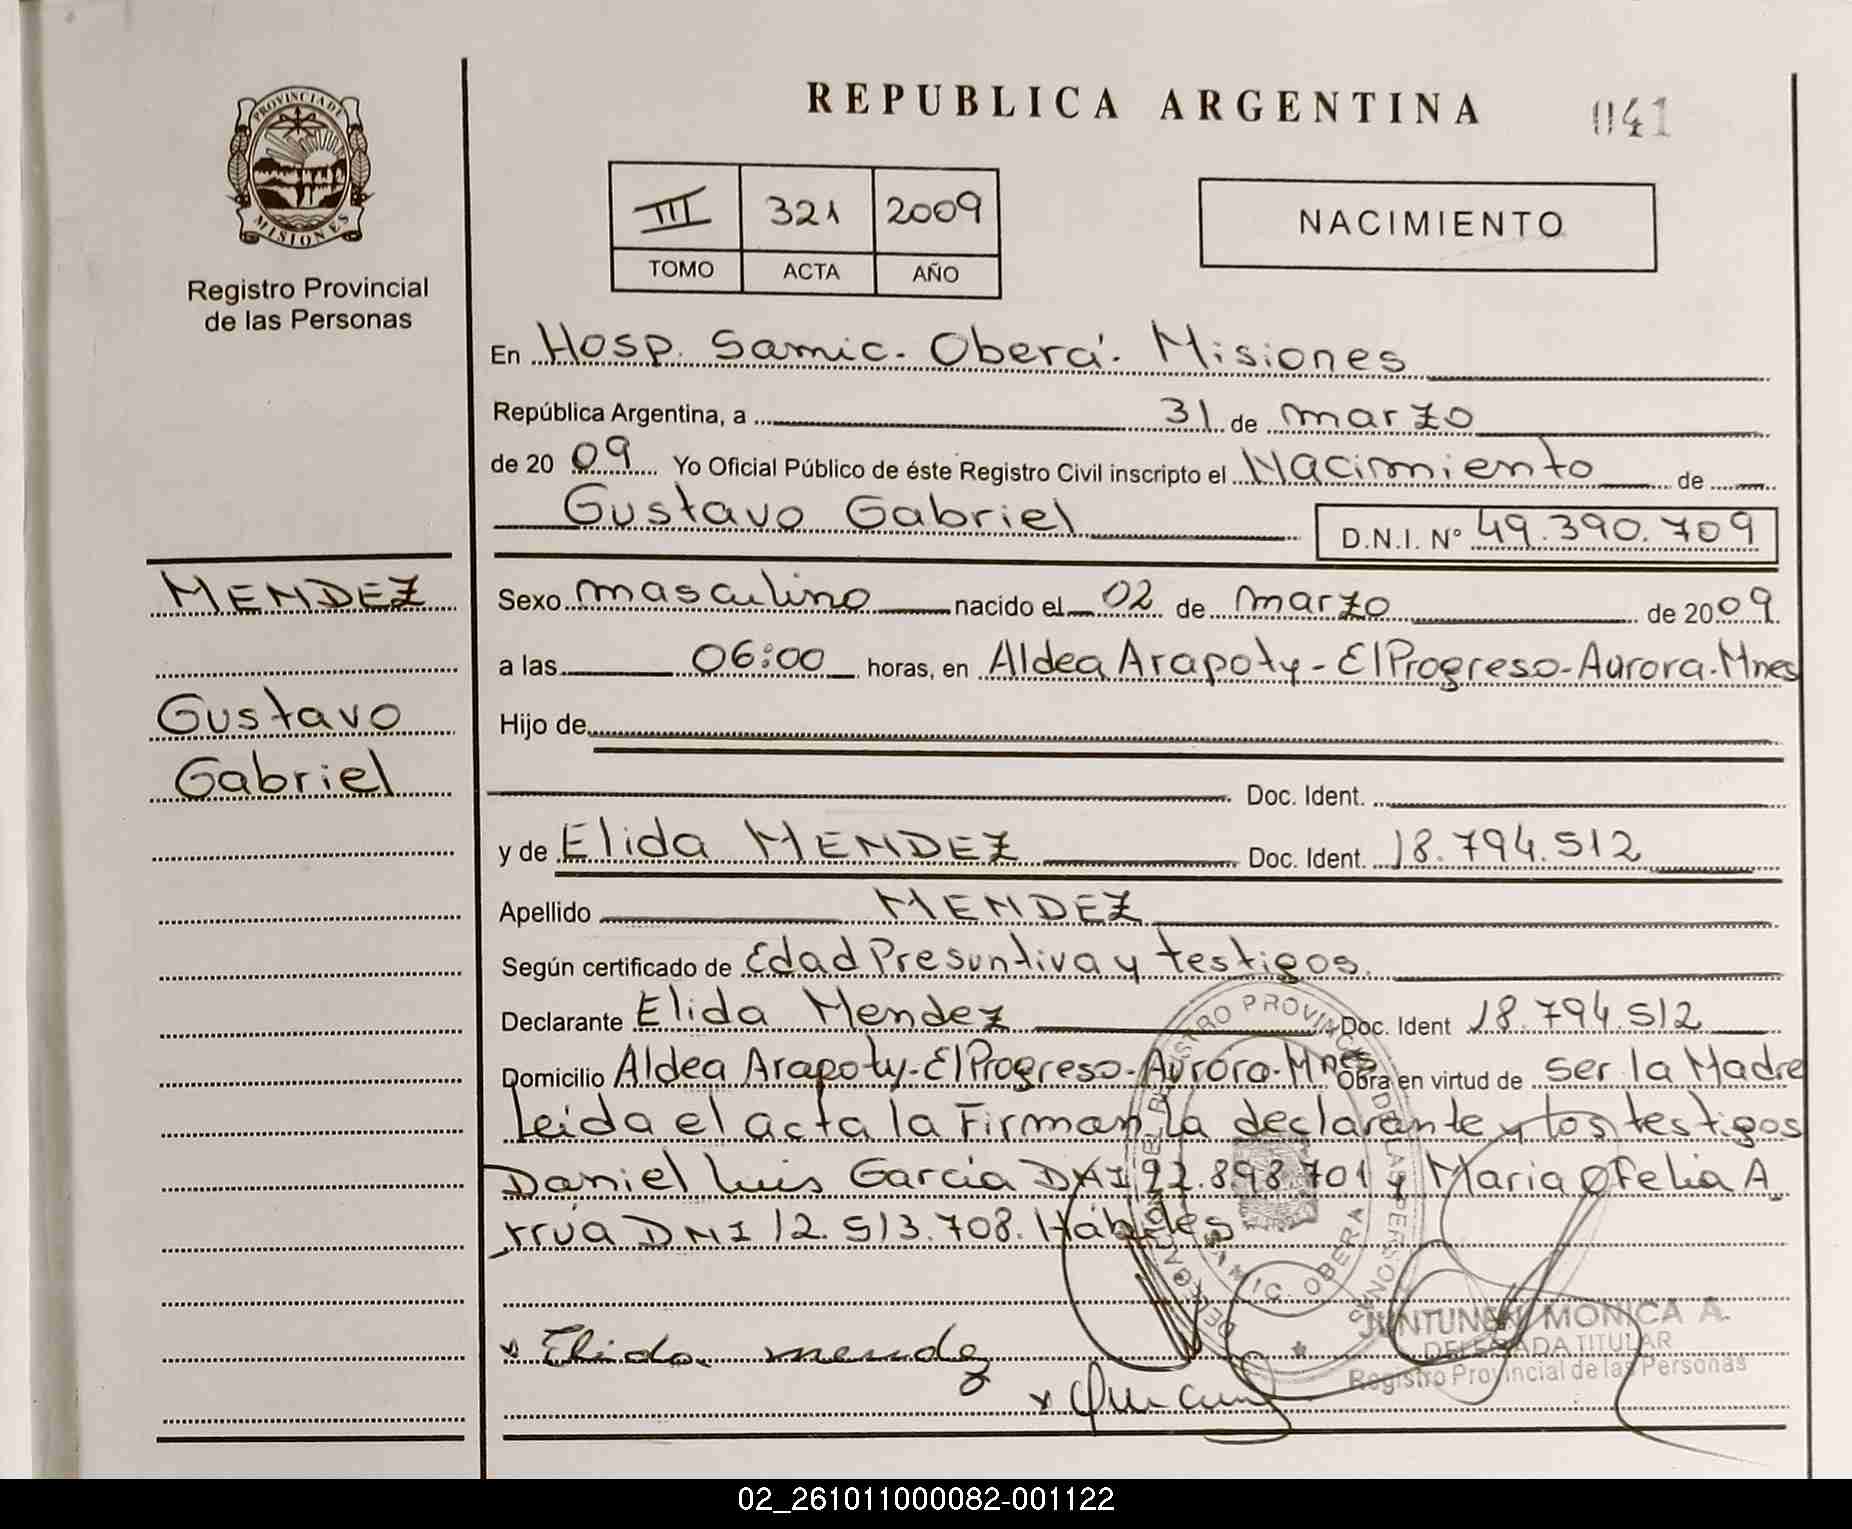 REPUBLICA ARGENTINA
041
PROVINCIA DE
MISIONES
Registro Provincial
de las Personas
III 321 2009
TOMO ACTA AÑO
NACIMIENTO
En Hosp. Samic. Oberá. Misiones
República Argentina, a 31 de marzo
de 20 09 Yo Oficial Público de éste Registro Civil inscripto el Nacimiento de
Gustavo Gabriel
D.N.I. Nº 49.390.709
MENDEZ
Gustavo
Gabriel
Sexo masculino nacido el 02 de marzo de 2009.
a las 06:00 horas, en Aldea Arapoty - El Progreso - Aurora - Mnes
Hijo de
Doc. Ident.
y de Elida MENDEZ Doc. Ident. 18.794.512
Apellido MENDEZ
Según certificado de Edad Presuntiva y testigos.
Declarante Elida Mendez Doc. Ident 18.794.512
Domicilio Aldea Arapoty - El Progreso - Aurora - Mnes Obra en virtud de ser la Madre
Leida el acta la Firman la declarante y los testigos
Daniel Luis Garcia DNI 22.898.701 y Maria Ofelia A
rrua DNI 12.513.708. Hábiles
x Elida mendez
JUNTUNEN MONICA A.
DELEGADA TITULAR
Registro Provincial de las Personas
02_261011000082-001122